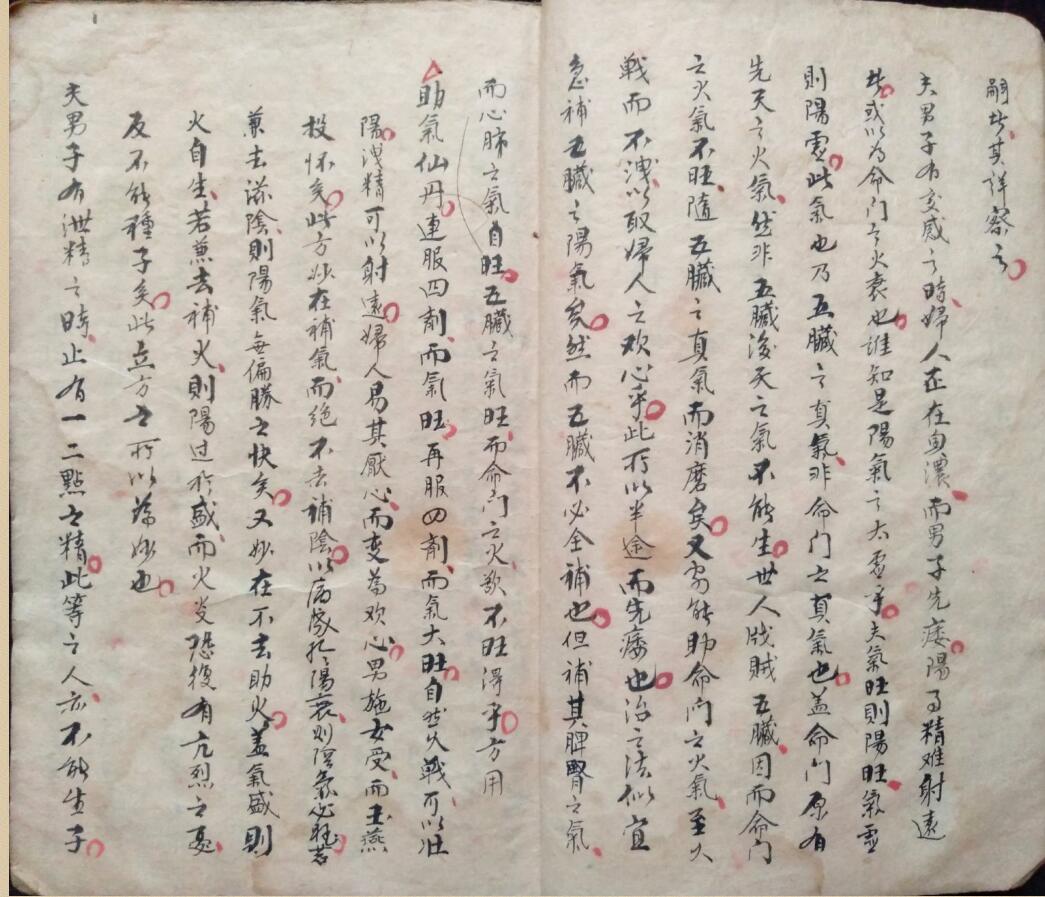 嗣者其詳察之
夫男子有交感之時婦人正在魚濃而男子先痿陽事精难射遠
者或以為命门之火衰也誰知是陽氣之太虛乎夫氣旺則陽旺氣虛
則陽虛此氣也乃五臟之真氣非命门之真氣也盖命门原有
先天之火氣然非五臟後天之氣不能生世人戕賊五臟因而命门
之火氣不旺隨五臟之真氣而消磨矣又安能助命门之火氣至火
戰而不洩以取婦人之欢心乎此所以半途而先痿也治之法似宜
急補五臟之陽氣矣然而五臟不必全補也但補其脾腎之氣
而心肺之氣自旺五臟之氣旺而命门之火欲不旺得乎方用
助氣仙丹連服四剤而氣旺再服四剤而氣大旺自然久戰可以壯
陽洩精可以射遠婦人易其厭心而变為欢心男施女受而玉燕
投怀矣此方妙在補氣而絕不去補陰以病陽衰則陰氣必旺若
兼去滋陰則陽氣無偏勝之快矣又妙在不去助火盖氣盛則
火自生若兼去補火則陽过於盛而火炎恐復有亢烈之憂
反不能種子矣此立方之所以為妙也
夫男子有泄精之時止有一二點之精此等之人亦不能生子